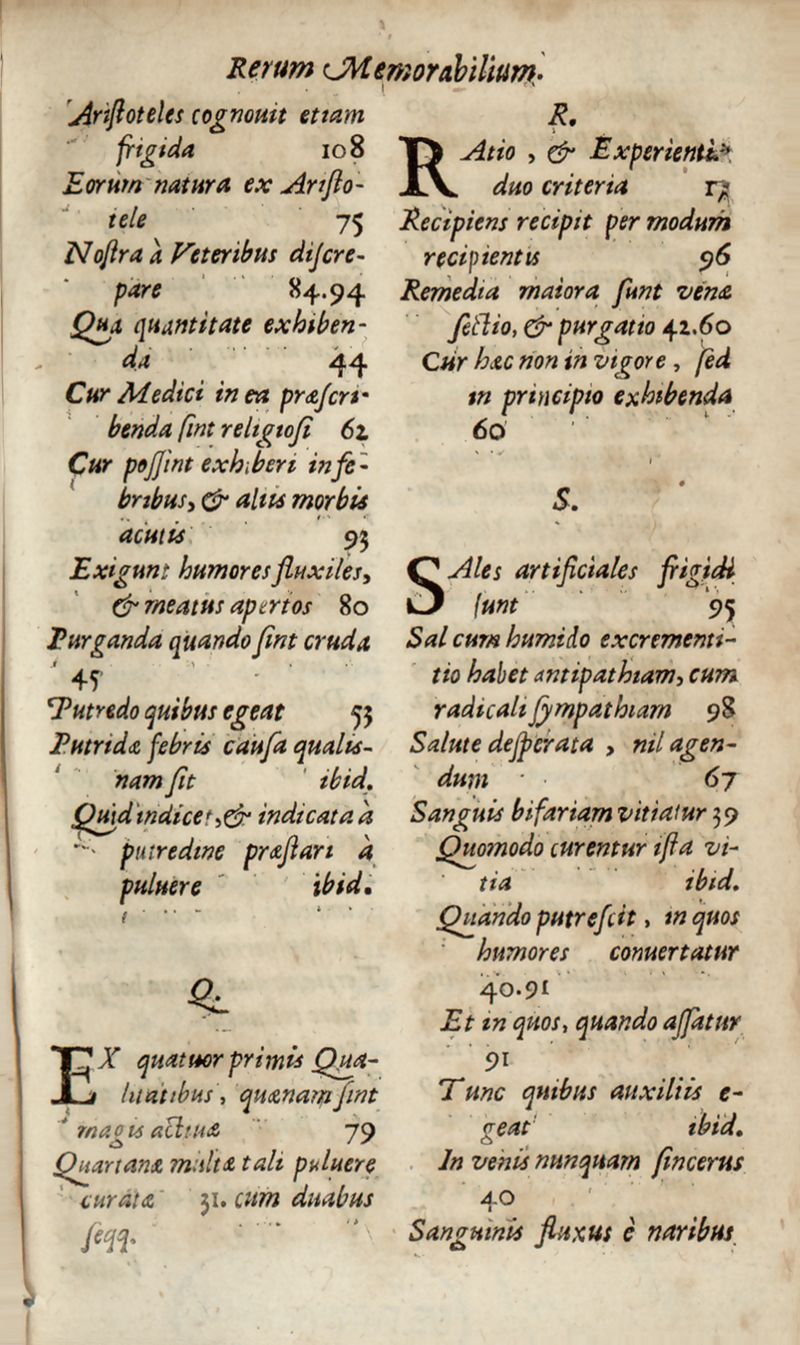 Rerum Memorabilium.
Ariſtoteles cognouit etiam
frigida 108
Eorum natura ex Ariſto-
tele 75
Noſtra à Veteribus diſcre-
pare 84.94
Qua quantitate exhiben-
da 44
Cur Medici in ea præſcri-
benda ſint religioſi 62
Cur poſſint exhiberi in fe-
bribus, & aliis morbis
acutis 93
Exigunt humores fluxiles,
& meatus apertos 80
Purganda quando ſint cruda
45
Putredo quibus egeat 53
Putridæ febris cauſa qualis-
nam ſit ibid.
Quid indicet, & indicata à
putredine præſtari à
puluere ibid.
Q.
EX quatuor primis Qua-
litatibus, quænam ſint
magis actiuæ 79
Quartanæ multæ tali puluere
curatæ 31. cum duabus
ſeqq.
R.
RAtio, & Experientia
duo criteria
Recipiens recipit per modum
recipientis 96
Remedia maiora ſunt venæ
ſectio, & purgatio 42.60
Cur hæc non in vigore, ſed
in principio exhibenda
60
S.
SAles artificiales frigidi
ſunt 95
Sal cum humido excrementi-
tio habet antipathiam, cum
radicali ſympathiam 98
Salute deſperata, nil agen-
dum 67
Sanguis bifariam vitiatur 39
Quomodo curentur iſta vi-
tia ibid.
Quando putreſcit, in quos
humores conuertatur
40.91
Et in quos, quando aſſatur
91
Tunc quibus auxiliis e-
geat ibid.
In venis nunquam ſincerus
40
Sanguinis fluxus è naribus